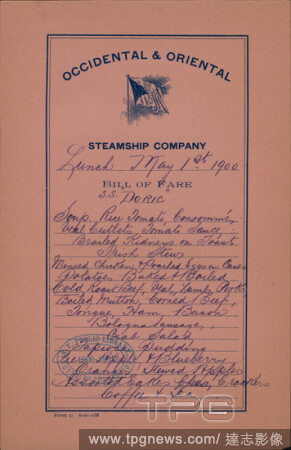 OCCIDENTAL & ORIENTAL
STEAMSHIP COMPANY
Lunch May 1st 1900
BILL OF FARE
S.S. "DORIC"
Soup. Rice Tomato, Consommé.
Veal Cutlets, Tomato Sauce
Broiled Kidneys on Toast
Irish Stew
Minced Chicken & Poached Eggs on
Potatoes Baked & Boiled
Cold Roast Beef, Veal, Lamb, Pork
Boiled Mutton, Corned Beef,
Tongue, Ham, Bacon
Bologna Sausage,
Crab Salad
Tapioca Pudding
Pies Apple & Blueberry
Oranges Stewed Apples
Assorted Cakes Cheese Crackers
Coffee & Tea
TPG
www.tpgnews.com / 達志影像